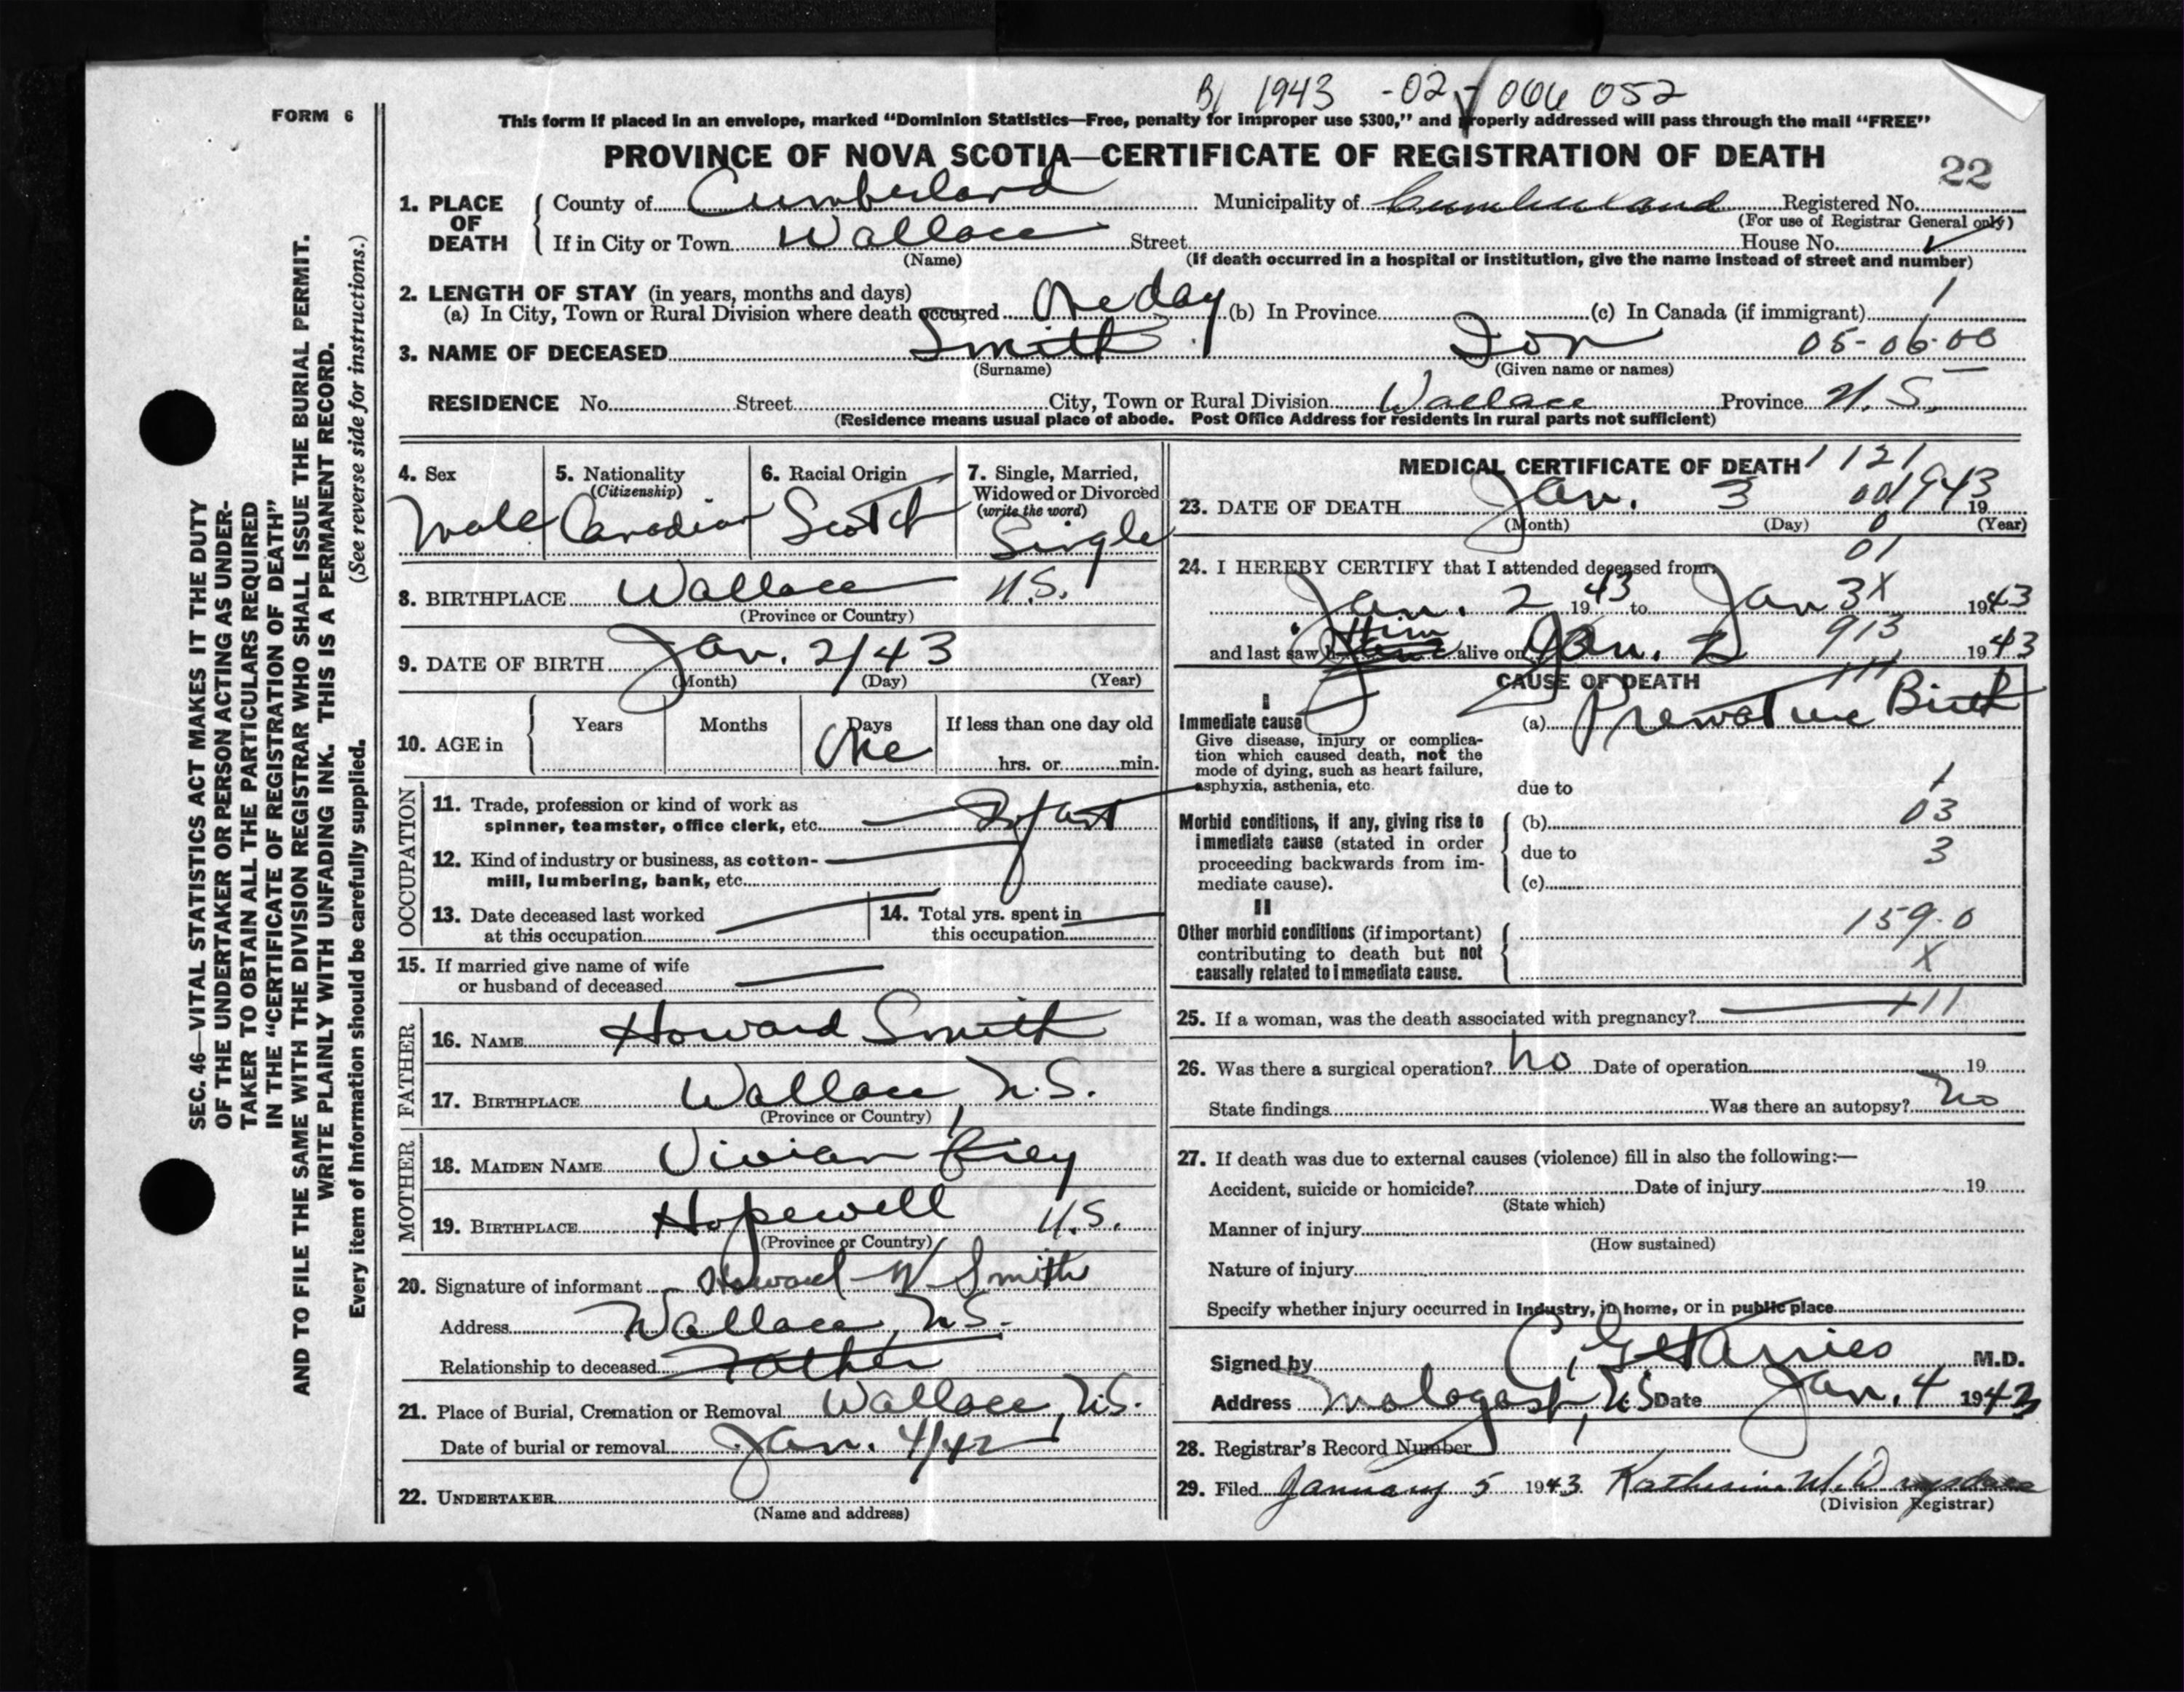 B/ 1943 -02- 066 052
FORM 6
This form if placed in an envelope, marked "Dominion Statistics—Free, penalty for improper use $300," and properly addressed will pass through the mail "FREE"
PROVINCE OF NOVA SCOTIA—CERTIFICATE OF REGISTRATION OF DEATH
22
1. PLACE OF DEATH
County of Cumberland Municipality of Cumberland Registered No.
(For use of Registrar General only)
If in City or Town Wallace Street House No.
(Name) (If death occurred in a hospital or institution, give the name instead of street and number)
2. LENGTH OF STAY (in years, months and days)
(a) In City, Town or Rural Division where death occurred One day (b) In Province (c) In Canada (if immigrant) 1
3. NAME OF DECEASED Smith 05-06-00
(Surname) (Given name or names)
RESIDENCE No. Street City, Town or Rural Division Wallace Province N.S.
(Residence means usual place of abode. Post Office Address for residents in rural parts not sufficient)
4. Sex
Male
5. Nationality
(Citizenship)
Canadian
6. Racial Origin
Scotch
7. Single, Married,
Widowed or Divorced
(write the word)
Single
8. BIRTHPLACE Wallace N.S.
(Province or Country)
9. DATE OF BIRTH Jan. 2/43
(Month) (Day) (Year)
10. AGE in
Years Months Days If less than one day old
One
hrs. or min.
OCCUPATION
11. Trade, profession or kind of work as
spinner, teamster, office clerk, etc. Infant
12. Kind of industry or business, as cotton-
mill, lumbering, bank, etc.
13. Date deceased last worked
at this occupation
14. Total yrs. spent in
this occupation
15. If married give name of wife
or husband of deceased
FATHER
16. NAME Howard Smith
17. BIRTHPLACE Wallace, N.S.
(Province or Country)
MOTHER
18. MAIDEN NAME Vivian
19. BIRTHPLACE Hopewell N.S.
(Province or Country)
20. Signature of informant Howard W. Smith
Address Wallace, N.S.
Relationship to deceased Father
21. Place of Burial, Cremation or Removal Wallace, N.S.
Date of burial or removal Jan. 4/42
22. UNDERTAKER
(Name and address)
MEDICAL CERTIFICATE OF DEATH 1121
23. DATE OF DEATH Jan. 3 1943
(Month) (Day) 19 (Year)
0
01
24. I HEREBY CERTIFY that I attended deceased from:
Jan. 2 1943 to Jan 3 X 1943
and last saw h Him alive on Jan. 2 913 1943
CAUSE OF DEATH
111
I
Immediate cause (a) Premature Birth
Give disease, injury or complica-
tion which caused death, not the
mode of dying, such as heart failure,
asphyxia, asthenia, etc. due to
1
Morbid conditions, if any, giving rise to (b) 03
immediate cause (stated in order due to 3
proceeding backwards from im-
mediate cause). (c)
II
Other morbid conditions (if important) 159.0
contributing to death but not
causally related to immediate cause. X
25. If a woman, was the death associated with pregnancy? 111
26. Was there a surgical operation? No Date of operation 19
State findings Was there an autopsy? No
27. If death was due to external causes (violence) fill in also the following:—
Accident, suicide or homicide? Date of injury 19
(State which)
Manner of injury
(How sustained)
Nature of injury
Specify whether injury occurred in Industry, in home, or in public place
Signed by M.D.
Address Malagash, N.S. Date Jan. 4 1943
28. Registrar's Record Number
29. Filed January 5 1943.
(Division Registrar)
SEC. 46—VITAL STATISTICS ACT MAKES IT THE DUTY
OF THE UNDERTAKER OR PERSON ACTING AS UNDER-
TAKER TO OBTAIN ALL THE PARTICULARS REQUIRED
IN THE "CERTIFICATE OF REGISTRATION OF DEATH"
AND TO FILE THE SAME WITH THE DIVISION REGISTRAR WHO SHALL ISSUE THE BURIAL PERMIT.
WRITE PLAINLY WITH UNFADING INK. THIS IS A PERMANENT RECORD.
Every item of Information should be carefully supplied. (See reverse side for instructions.)